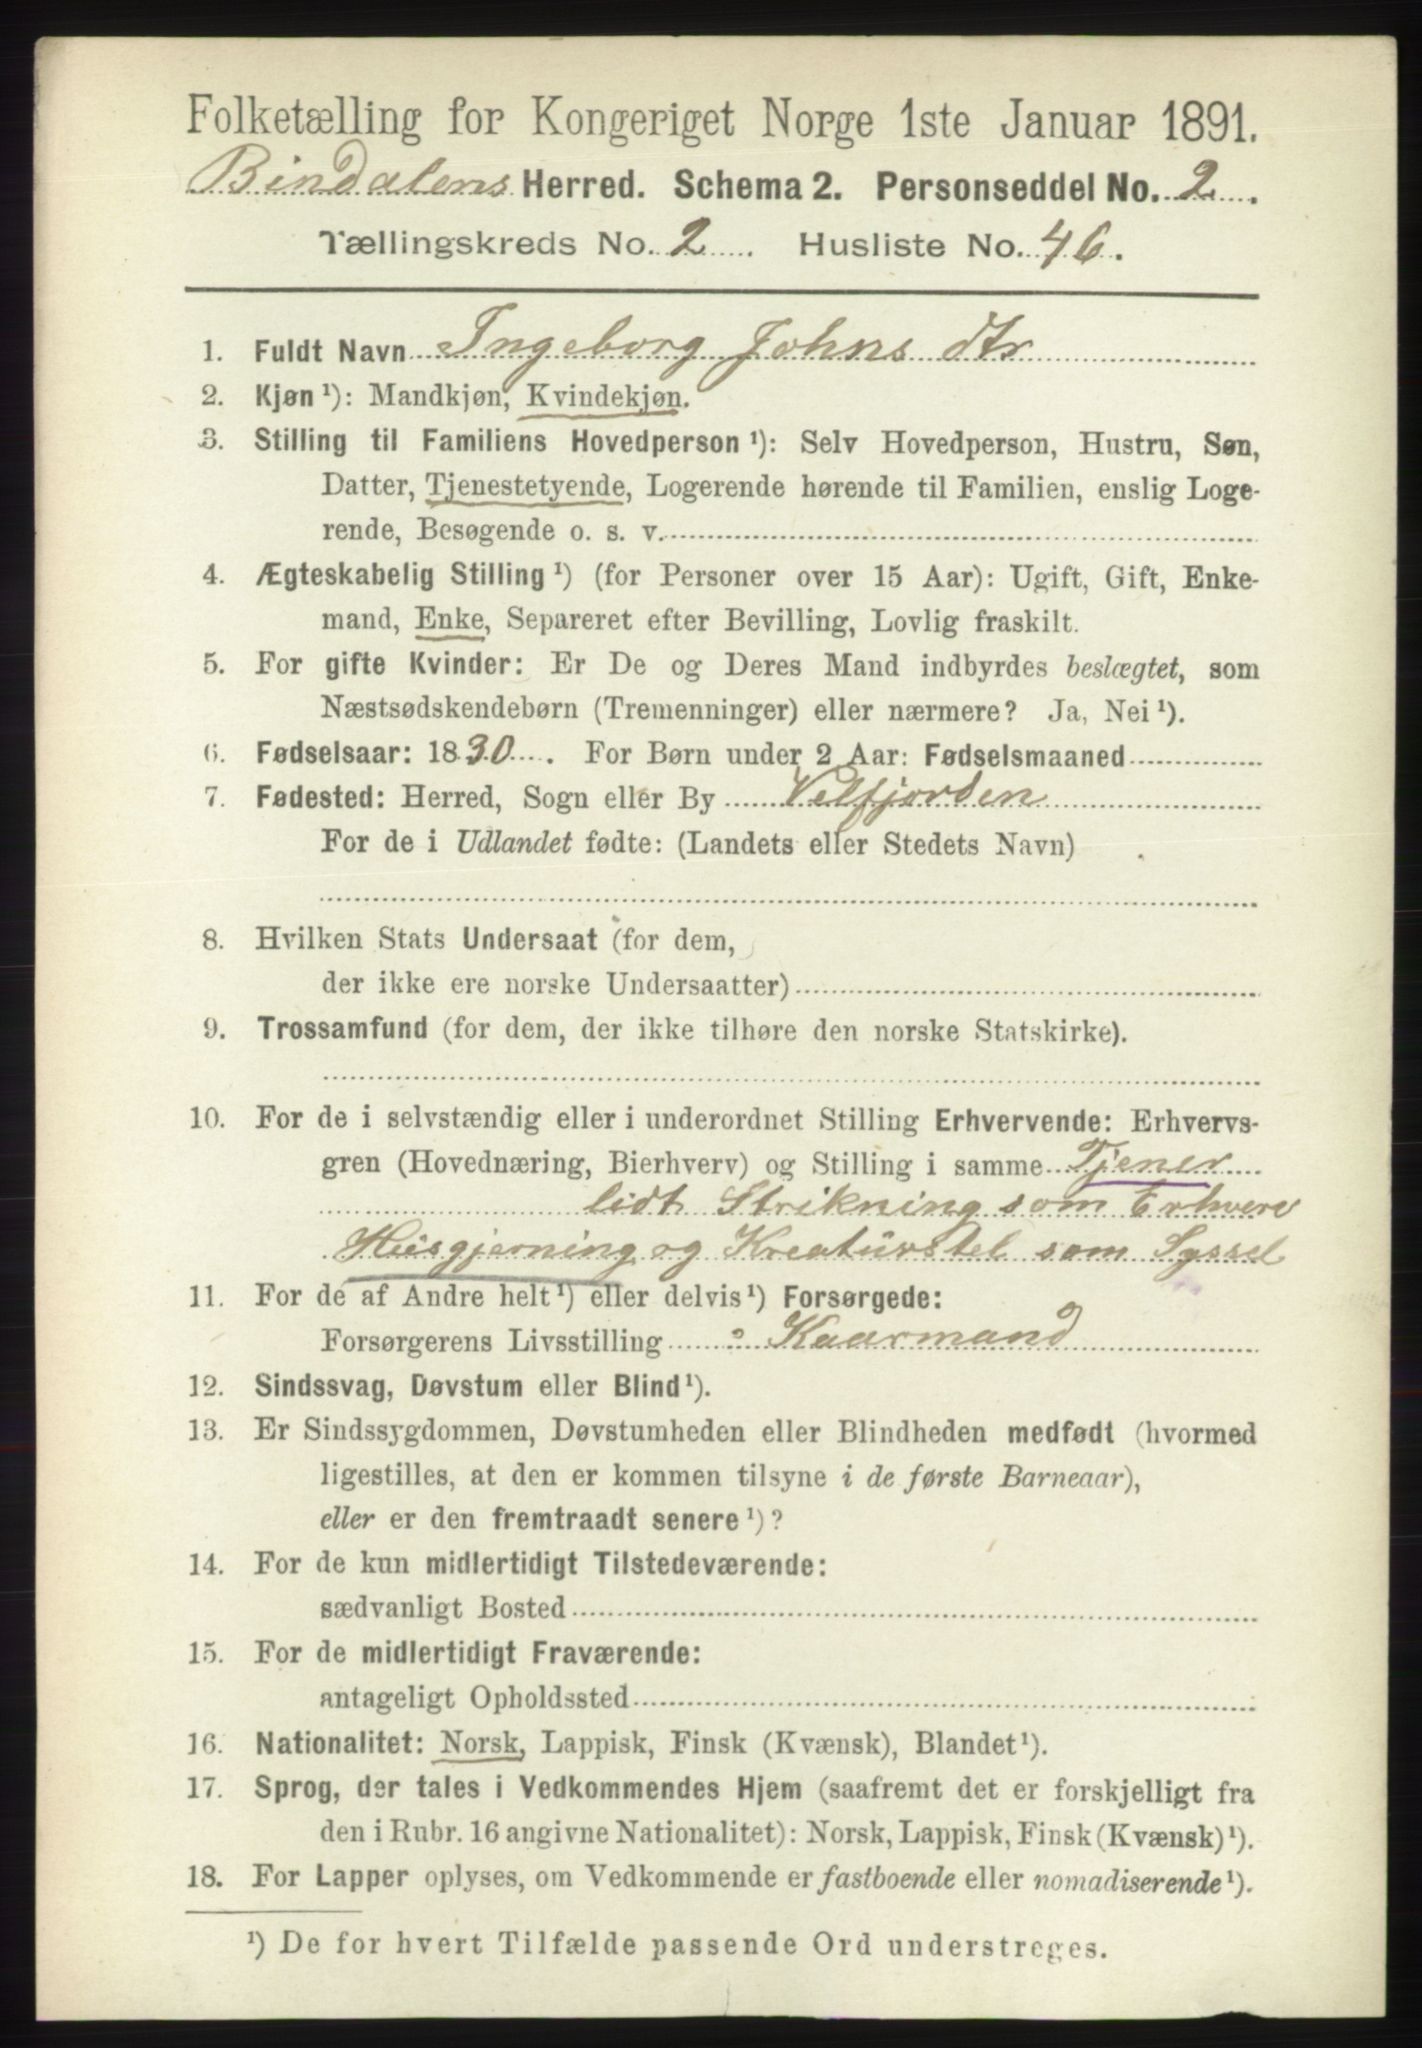 Folketælling for Kongeriget Norge 1ste Januar 1891.
Bindalens Herred. Schema 2. Personseddel No. 2.
Tællingskreds No. 2 Husliste No. 46.
1. Fuldt Navn Ingeborg Johns dtr
2. Kjøn ¹): Mandkjøn, Kvindekjøn.
3. Stilling til Familiens Hovedperson ¹): Selv Hovedperson, Hustru, Søn,
Datter, Tjenestetyende, Logerende hørende til Familien, enslig Loge-
rende, Besøgende o. s. v.
4. Ægteskabelig Stilling ¹) (for Personer over 15 Aar): Ugift, Gift, Enke-
mand, Enke, Separeret efter Bevilling, Lovlig fraskilt.
5. For gifte Kvinder: Er De og Deres Mand indbyrdes beslægtet, som
Næstsødskendebørn (Tremenninger) eller nærmere? Ja, Nei ¹).
6. Fødselsaar: 1830. For Børn under 2 Aar: Fødselsmaaned
7. Fødested: Herred, Sogn eller By Velfjorden
For de i Udlandet fødte: (Landets eller Stedets Navn)
8. Hvilken Stats Undersaat (for dem,
der ikke ere norske Undersaatter)
9. Trossamfund (for dem, der ikke tilhøre den norske Statskirke).
10. For de i selvstændig eller i underordnet Stilling Erhvervende: Erhvervs-
gren (Hovednæring, Bierhverv) og Stilling i samme Tjener
lidt Strikning som Erhverv
Husgjerning og Kreaturstel som Syssel
11. For de af Andre helt ¹) eller delvis ¹) Forsørgede:
Forsørgerens Livsstilling : Kaarmand
12. Sindssvag, Døvstum eller Blind ¹).
13. Er Sindssygdommen, Døvstumheden eller Blindheden medfødt (hvormed
ligestilles, at den er kommen tilsyne i de første Barneaar),
eller er den fremtraadt senere ¹)?
14. For de kun midlertidigt Tilstedeværende:
sædvanligt Bosted
15. For de midlertidigt Fraværende:
antageligt Opholdssted
16. Nationalitet: Norsk, Lappisk, Finsk (Kvænsk), Blandet ¹).
17. Sprog, der tales i Vedkommendes Hjem (saafremt det er forskjelligt fra
den i Rubr. 16 angivne Nationalitet): Norsk, Lappisk, Finsk (Kvænsk) ¹).
18. For Lapper oplyses, om Vedkommende er fastboende eller nomadiserende ¹).
¹) De for hvert Tilfælde passende Ord understreges.